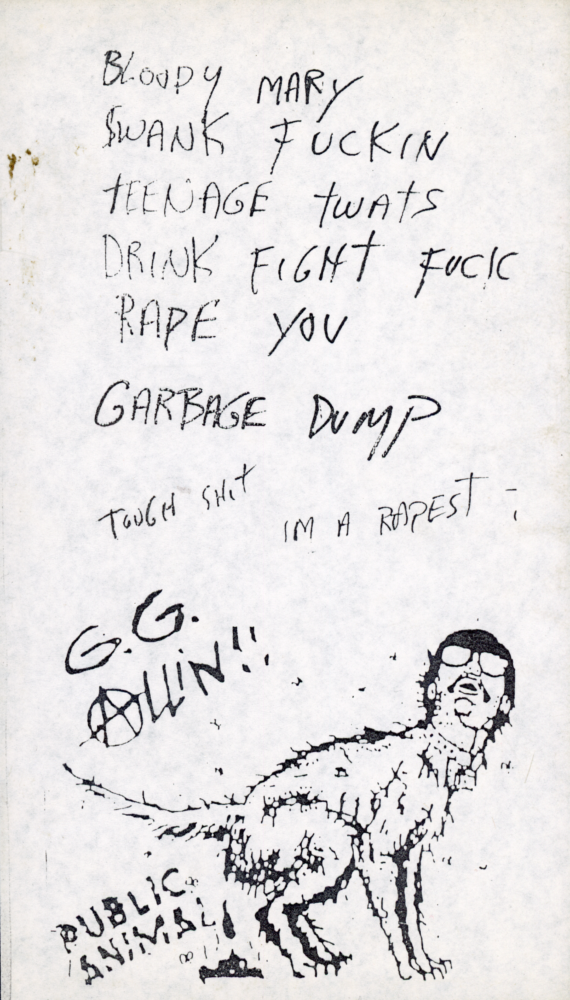 BLOODY MARY
SWANK FUCKIN
TEENAGE TWATS
DRINK FIGHT FUCK
RAPE YOU
GARBAGE DUMP
TOUGH SHIT IM A RAPEST -
G.G.
ALLIN!!
PUBLIC
ANIMAL